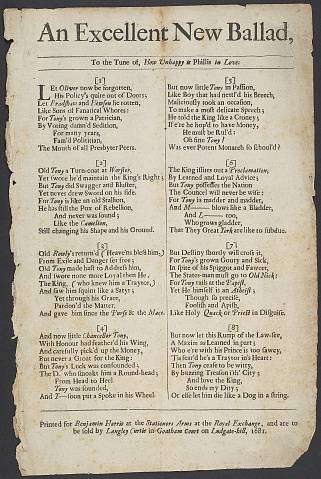 An Excellent New Ballad,
To the Tune of, How Unhappy is Phillis in Love.
[1]
LEt Oliver now be forgotten,
His Policy's quite out of Doors;
Let Bradshaw and Hewson lie rotten,
Like Sons of Fanatical Whores:
For Tony's grown a Patrician,
By Voting damn'd Sedition,
For many years,
Fam'd Politician,
The Mouth of all Presbyter Peers.
[2]
Old Tony a Turn-coat at Worster,
Yet swore he'd maintain the King's Right;
But Tony did Swagger and Bluster,
Yet never drew Sword on his side.
For Tony is like an old Stallion,
He has still the Pox of Rebellion,
And never was sound;
Like the Camelion,
Still changing his Shape and his Ground.
[3]
Old Rowly's return'd (Heaven bless him,)
From Exile and Danger set free;
Old Tony made hast to Address him,
And swore none more Loyal then He:
The King, (who knew him a Traytor,)
And saw him squint like a Satyr;
Yet through his Grace,
Pardon'd the Matter,
And gave him since the Purse & the Mace.
[4]
And now little Chancellor Tony,
With Honour had feather'd his Wing,
And carefully pick'd up the Money,
But never a Groat for the King:
But Tony's Luck was confounded;
The D. who smoakt him a Round-head;
From Head to Heel
Tony was founded,
And Y— soon put a Spoke in his Wheel.
[5]
But now little Tony in Passion,
Like Boy that had nettl'd his Breech,
Maliciously took an occasion,
To make a most delicate Speech;
He told the King like a Croney;
If e're he hop'd to have Money,
He must be Rul'd:
Oh fine Tony!
Was ever Potent Monarch so school'd?
[6]
The King issues out a Proclamation,
By Learned and Loyal Advice;
But Tony possesses the Nation
The Council will never be wise:
For Tony is mad for the Rabble,
and M— blows like a Bladder,
And L— too,
Who grows gladder,
That They Great York are like to subdue.
[7]
But Destiny shortly will cross it,
For Tony's grown Gouty and Sick,
In spite of his Spiggot and Faucet,
The States-man must go to Old Nick:
For Tony rails at the Papist,
Yet He himself is an Atheist;
Though so precise,
Foolish and Apish,
Like Holy Quack or Priest in Disguise.
[8]
But now let this Rump of the Law-see,
A Maxim as Learned in part;
Who e're with his Prince is too sawcy,
'Tis fear'd he's a Traytor in's Heart:
Then Tony cease to be witty,
By buzzing Treason ith' City;
And love the King,
So ends my Ditty;
Or else let him die like a Dog in a string.
Printed for Benjamin Harris at the Stationers Arms at the Royal Exchange, and are to
be sold by Langley Curtis in Goatham Court on Ludgate-hill, 1681.